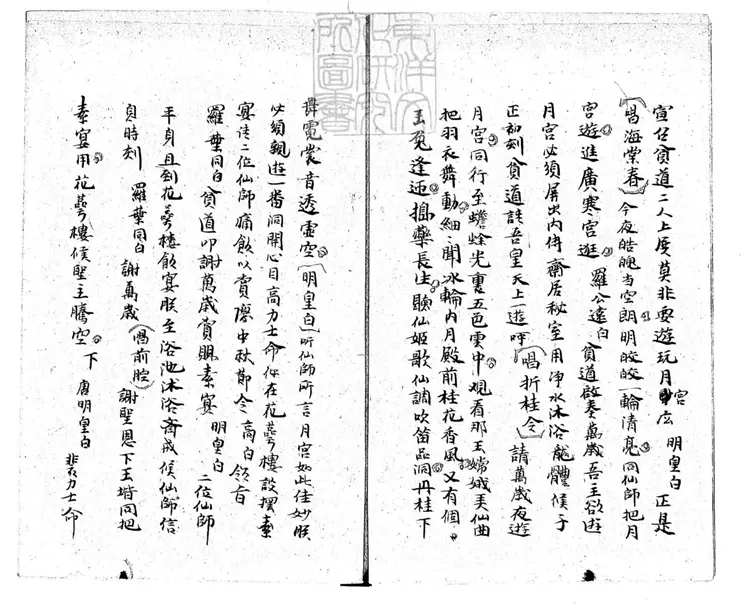 宣召貧道二人上殿莫非要遊玩月宮広　明皇白　正是
唱海棠春　今夜皓魄当空朗明皎皎一輪清亮同仙師把月
宮遊進廣寒宮逛　羅公遠白　貧道啟奏萬歲吾主欲遊
月宮必須屏出內侍齋居秘室用净水沐浴龍體候于
正初刻貧道託吾皇天上一遊呼　唱折桂令　請萬歲夜遊
月宮同行至蟾蜍光裏五色雲中觀看那玉嫦娥美仙曲
把羽衣舞動細ミ聞氷輪內月殿前桂花香風又有個
玉兔逢迊搗藥長生聽仙姬歌仙調吹笛品洞丹桂下
舞霓裳音透虛空　明皇白　听仙師所言月宮如此佳妙朕
必須親遊一番洞開心目高力士命你在花萼樓設擺素
宴待二位仙師痛飲以賞凜中秋節令　高白　領旨
羅葉同白　貧道叩謝萬歲賞賜素宴　明皇白　二位仙師
平身且到花萼樓飲宴朕至浴池沐浴斎戒候仙師信
息時刻　羅葉同白　謝萬歲　唱前腔　謝聖恩下玉堦同把
素宴用花萼樓候聖主騰空　下　唐明皇白　裴力士命